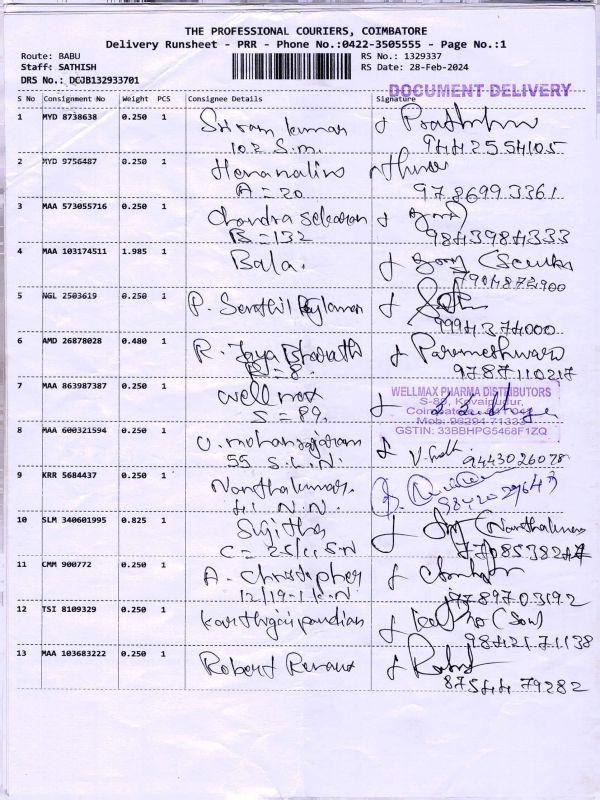 THE PROFESSIONAL COURIERS, COIMBATORE
Delivery Runsheet - PRR - Phone No.:0422-3505555 - Page No.:1
Route: BABU
Staff: SATHISH
DRS No.: DCJB132933701
RS No.: 1329337
RS Date: 28-Feb-2024
DOCUMENT DELIVERY
S No Consignment No Weight PCS Consignee Details Signature
1 MYD 8738638 0.250 1 Sriram kumar
102 S.m. 9442554105
2 MYD 9756487 0.250 1
A = 20 9786993361
3 MAA 573055716 0.250 1 Chandra sekaran
B = 132 9843984333
4 MAA 103174511 1.985 1 Bala.
7904872900
5 NGL 2503619 0.250 1 P. Senthil
9994374000
6 AMD 26878028 0.480 1 R. Jaya Bharath Parameshwari
B = 8. 9787110217
7 MAA 863987387 0.250 1 Well max
S = 89.
WELLMAX PHARMA DISTRIBUTORS
S-89, Kovaipudur,
Mob: 96294 71333
GSTIN: 33BBHPG5468F1ZQ
8 MAA 600321594 0.250 1 U. mohanrajaram
55 S.L.N. 9443026078
9 KRR 5684437 0.250 1 Nanthakumar.
41 N.N. 9842029643
10 SLM 340601995 0.825 1 Sujitha (Nanthakumar
C = 25/11 S.N
11 CMM 900772 0.250 1 A. Christopher
9789703192
12 TSI 8109329 0.250 1 Karthigaipandian (Son)
9842171138
13 MAA 103683222 0.250 1 Robert
8754479282